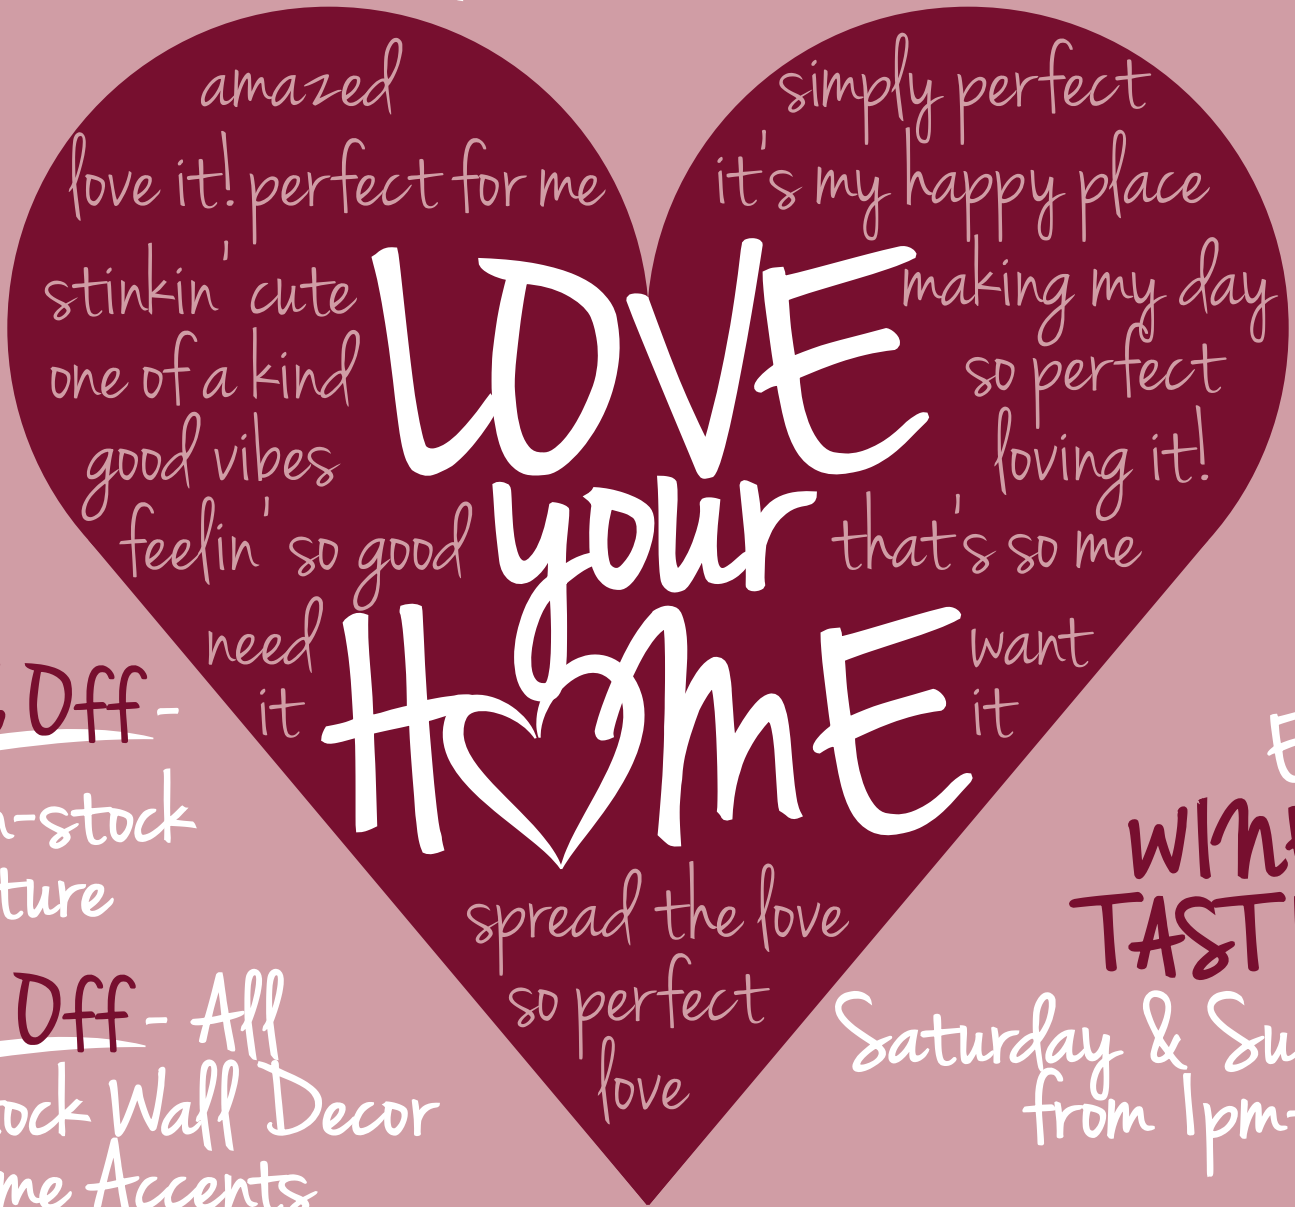 amazed
love it! perfect for me
stinkin' cute
one of a kind
good vibes
feelin' so good
need
it
simply perfect
it's my happy place
making my day
so perfect
loving it!
that's so me
want
it
LOVE
your
HOME
spread the love
so perfect
love
Off -
-stock
Off - All
Wall Decor
Accents
Saturday &
from 1pm-